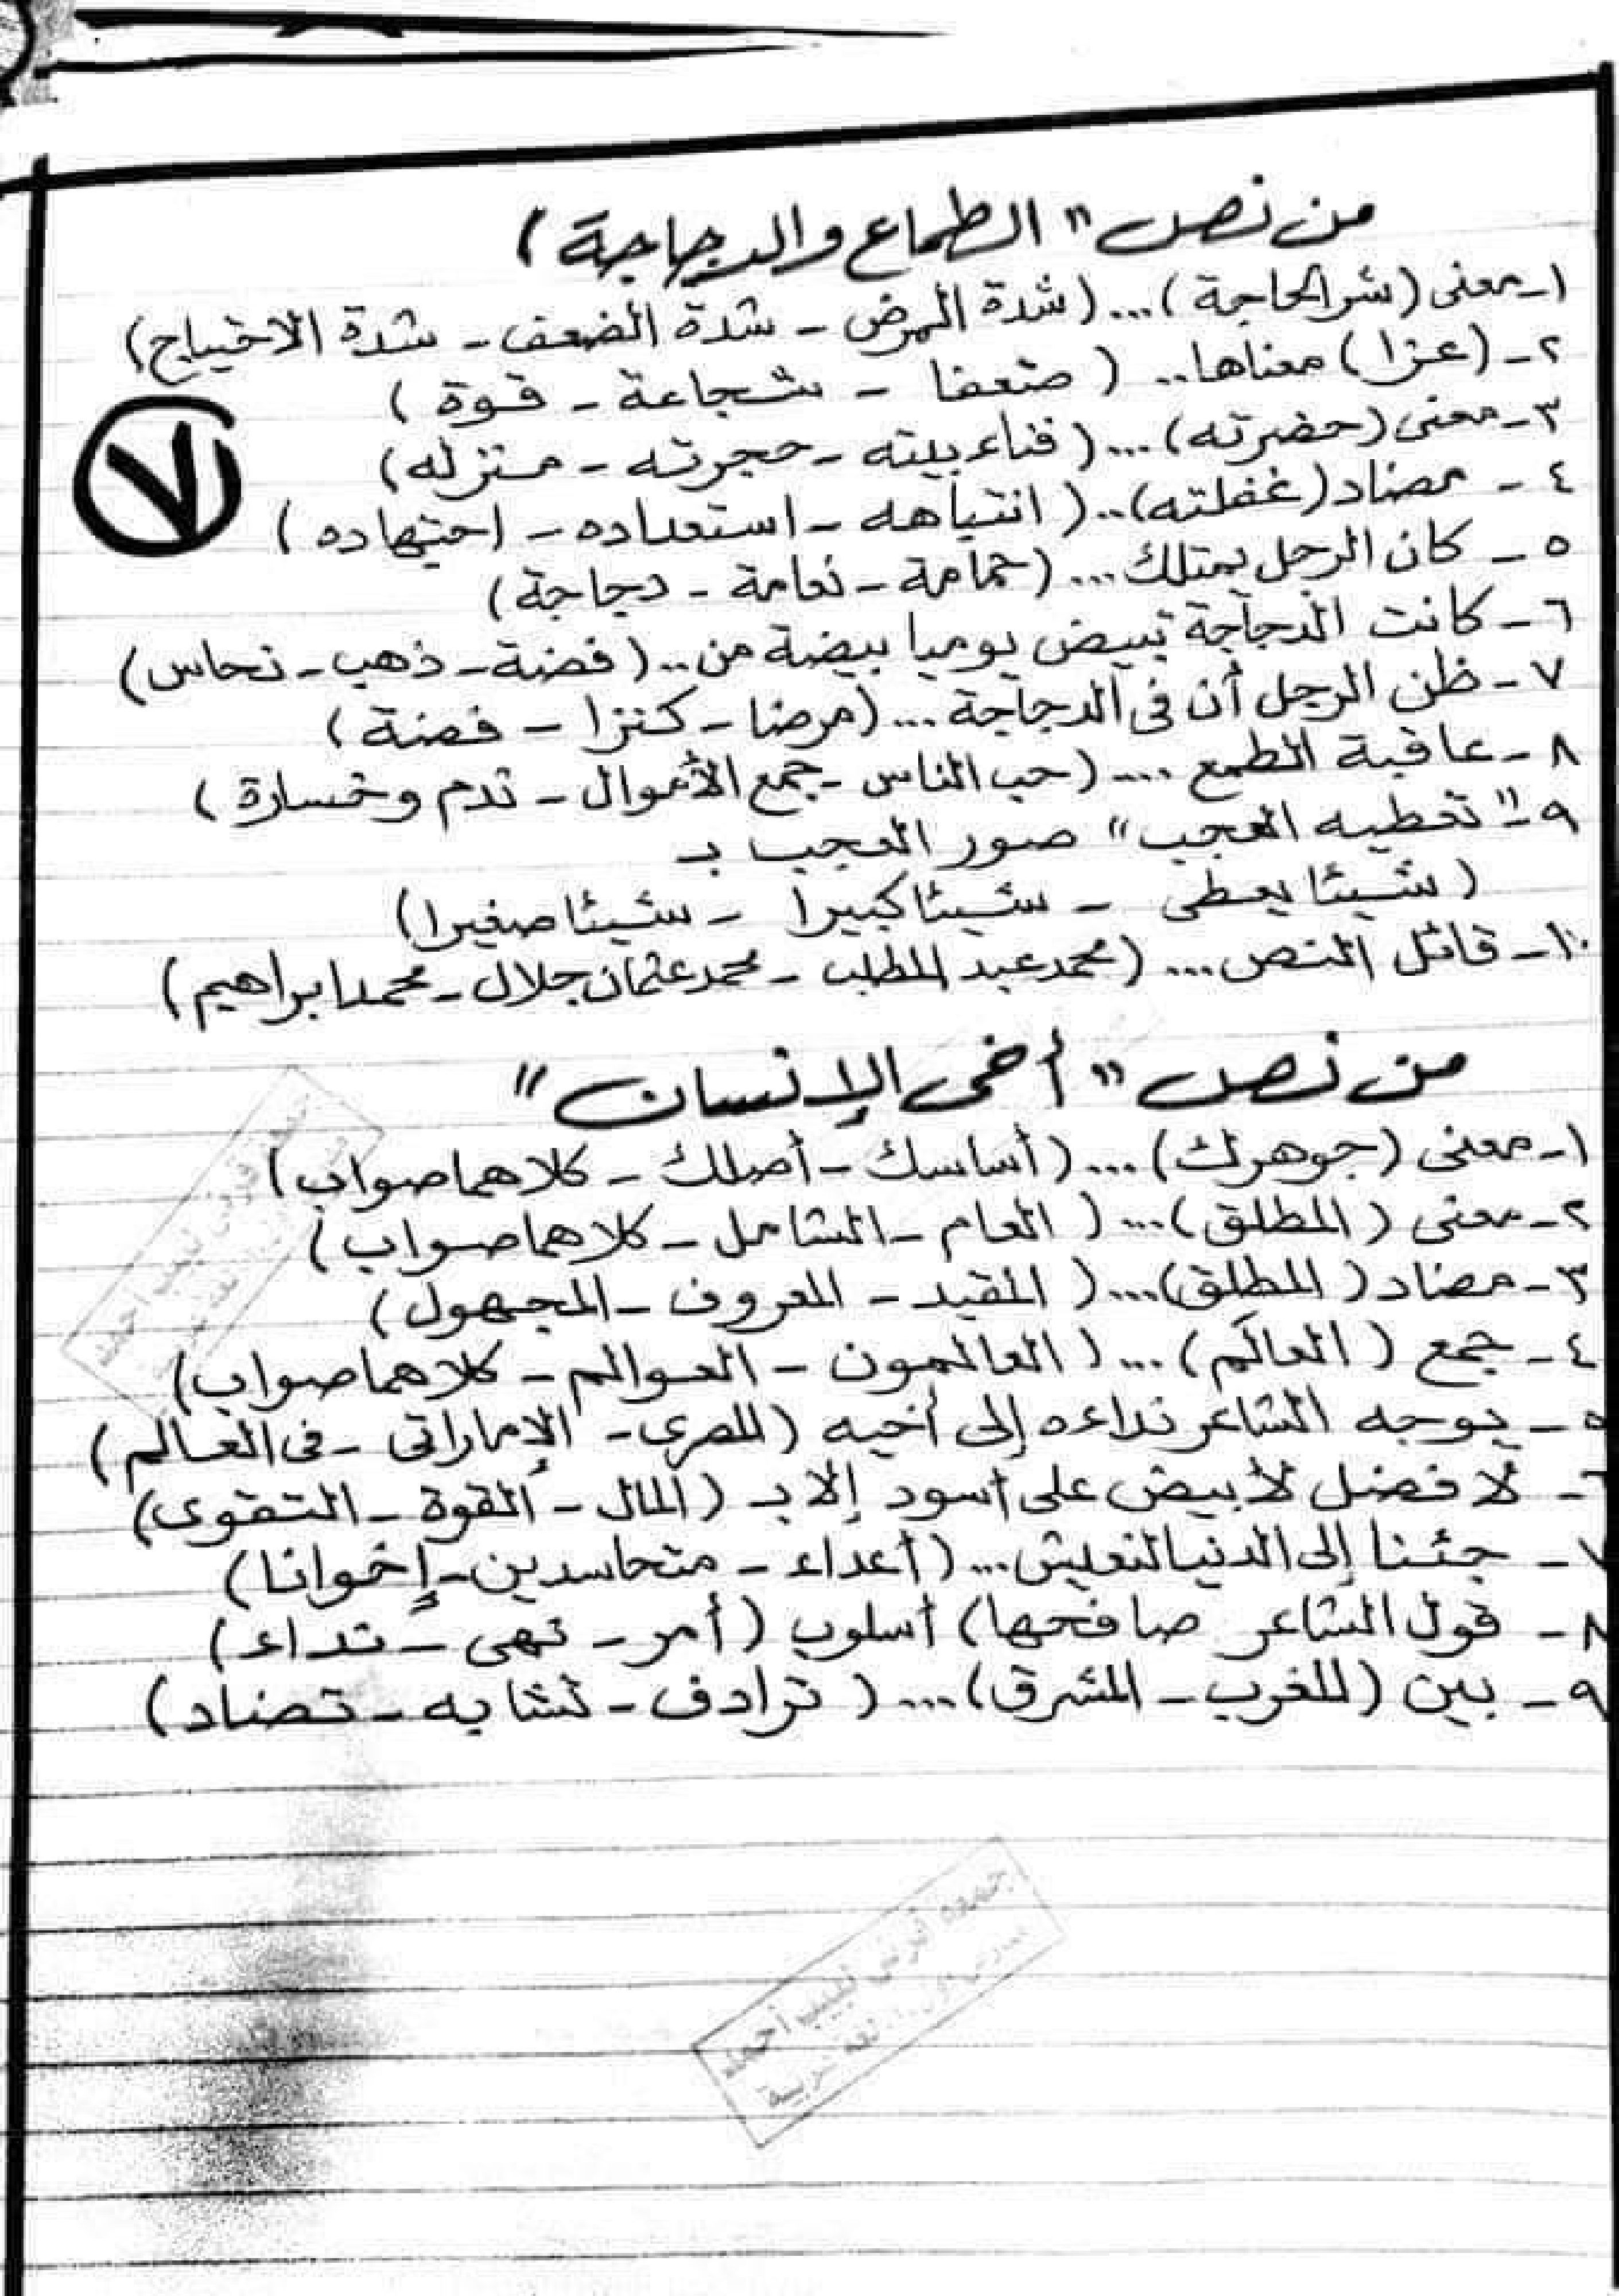 من نص " الطماع والدجاجة )
١- معنى (شر الحاجة) ... (شدة المرض - شدة الضعف - شدة الاحتياج)
٢- (عزا) معناها.. ( ضعفا - شجاعة - قوة )
٣- معنى (حضرته) ... ( فناء بيته - حجرته - منزله)
٤- مضاد (غفلته) .. ( انتباهه - استعداده - اجتهاده )
٥- كان الرجل يمتلك ... (حمامة - نعامة - دجاجة)
٦- كانت الدجاجة تبيض يوميا بيضة من .. (فضة - ذهب - نحاس)
٧- ظن الرجل أن فى الدجاجة ... (مرضا - كنزا - فضة )
٨- عاقبة الطمع .... (حب الناس - جمع الأموال - ندم وخسارة )
٩- " تعطيه العجب " صور العجب بـ
( شيئا يعطى - شيئا كبيرا - شيئا صغيرا)
١٠- قائل النص ... (محمد عبد المطلب - محمد عثمان جلال - محمد ابراهيم)
٧
من نص " أخى الإنسان "
١- معنى (جوهرك) ... (أساسك - أصلك - كلاهما صواب)
٢- معنى (المطلق) ... ( العام - الشامل - كلاهما صواب)
٣- مضاد (المطلق) ... ( المقيد - المعروف - المجهول)
٤- جمع ( العالَم) ... ( العالمون - العوالم - كلاهما صواب)
٥- يوجه الشاعر نداءه إلى أخيه (المصرى - الإماراتى - فى العالم)
٦- لا فضل لأبيض على أسود إلا بـ (المال - القوة - التقوى)
٧- جئنا إلى الدنيا لنعيش ... (أعداء - متحاسدين - إخوانا)
٨- قول الشاعر صافحها) أسلوب (أمر - نهى - نداء)
٩- بين (المغرب - المشرق) ... ( ترادف - تشابه - تضاد)
لبيب أحمد
لغة عربية